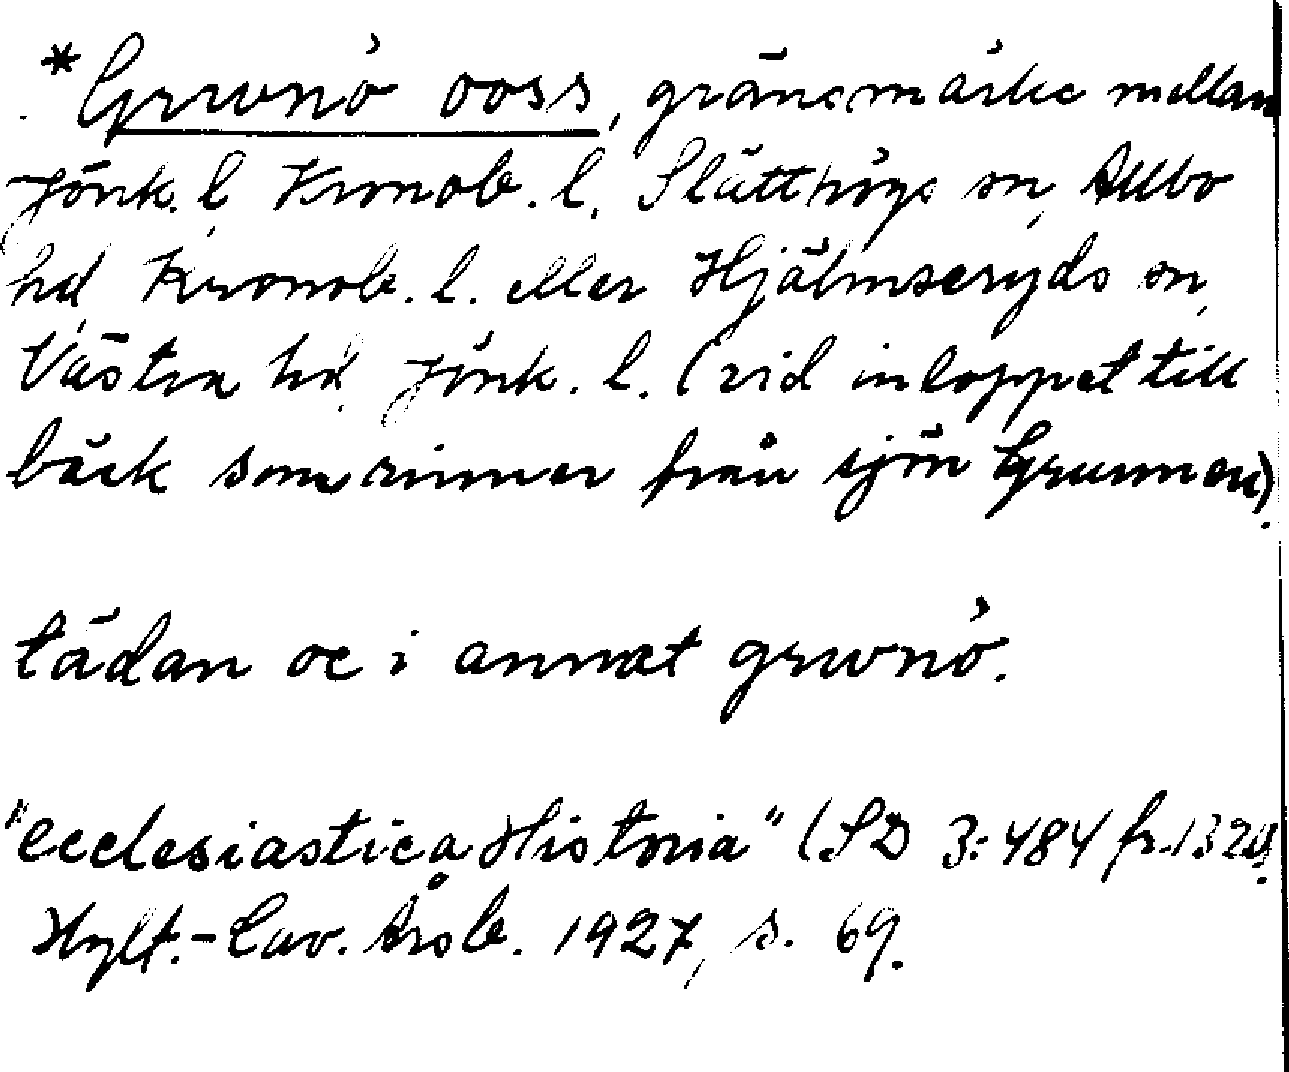 *Grwnó ooss, gränsmärke mellan
Jönk. l, Kronob. l. Slätthögs sn, Allbo
hd, Kronob. l. eller Hjälmseryds sn,
Västra hd, Jönk. l. (vid inloppet till
bäck som rinner från sjön Grunnen).
tädan oc i annat grwnó.
"Ecclesiastica Historia" (SD 3:484 fr. 1320)
Hylt.-Cav. Årsb. 1927, s. 69.